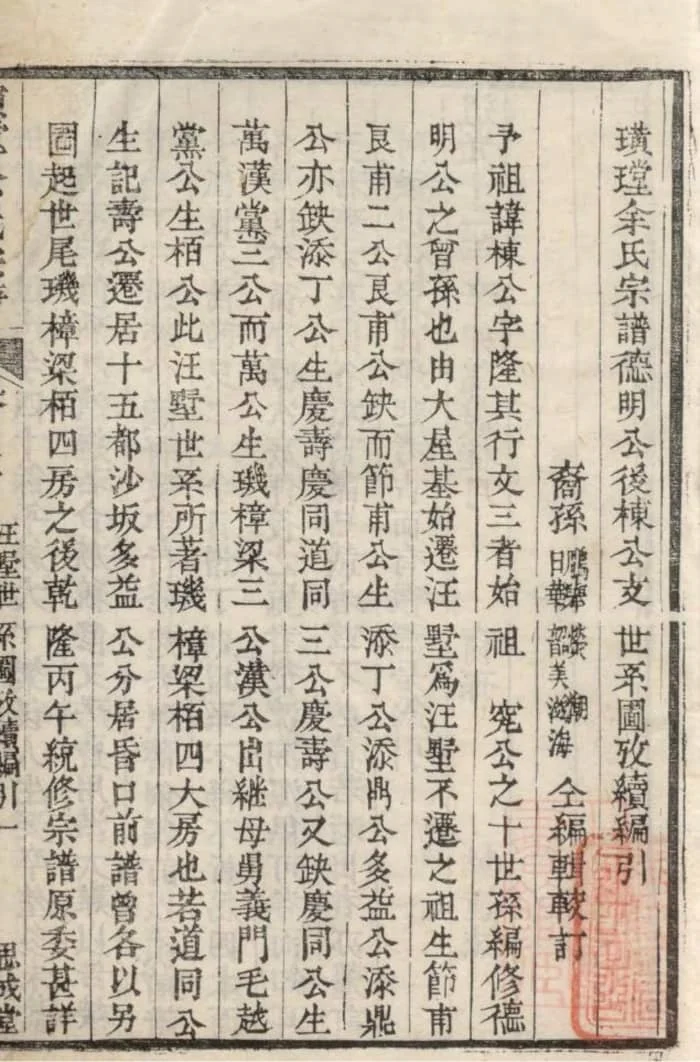 璜瑝余氏宗譜德明公後棟公支世系圖攷續編引
裔孫 日華 韶美 海 仝編輯較訂
予祖諱棟公字隆其行文三者始祖 兖公之十世孫編修德
明公之曾孫也由大屋基始遷汪墅爲汪墅不遷之祖生節甫
良甫二公良甫公缺而節甫公生添丁公添鼎公多益公添鼎
公亦缺添丁公生慶壽慶同道同三公慶壽公又缺慶同公生
萬漢黨三公而萬公生璣樟梁三公漢公出繼母舅義門毛越
黨公生栢公此汪墅世系所著璣樟梁栢四大房也若道同公
生記壽公遷居十五都沙坂多益公分居昏口前譜曾各以另
圖起世尾璣樟梁栢四房之後乾隆丙午統修宗譜原委甚詳
汪墅世系圖攷續編引一 思成堂